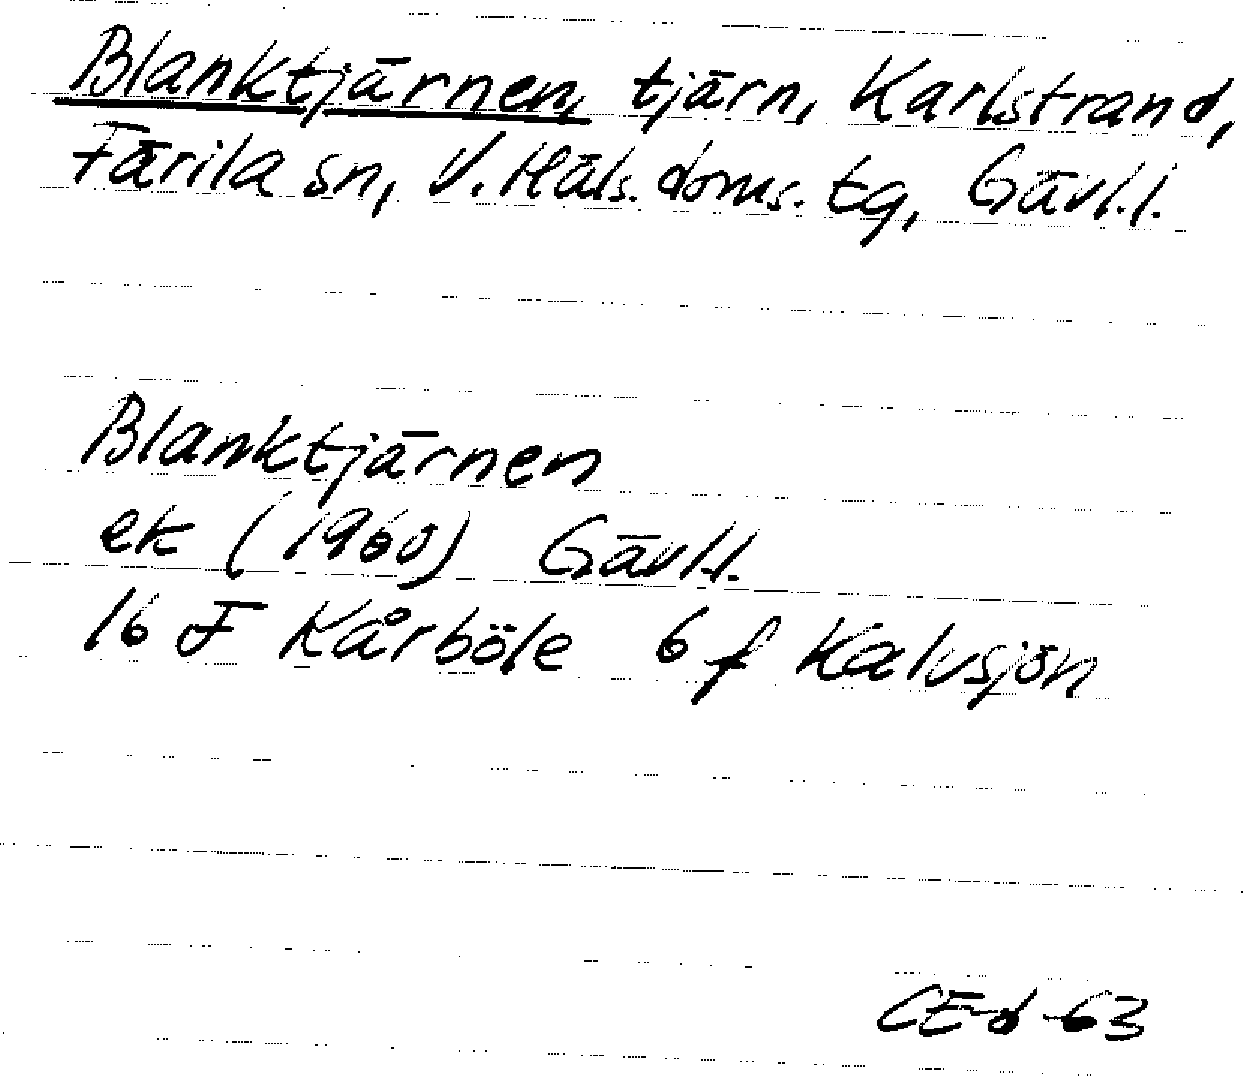 Blanktjärnen, tjärn, Karlstrand,
Färila sn, V. Häls. doms. tg, Gävl.l.
Blanktjärnen
ek (1960) Gävl.l.
16 F Kårböle 6 f Kalvsjön
CEd 63